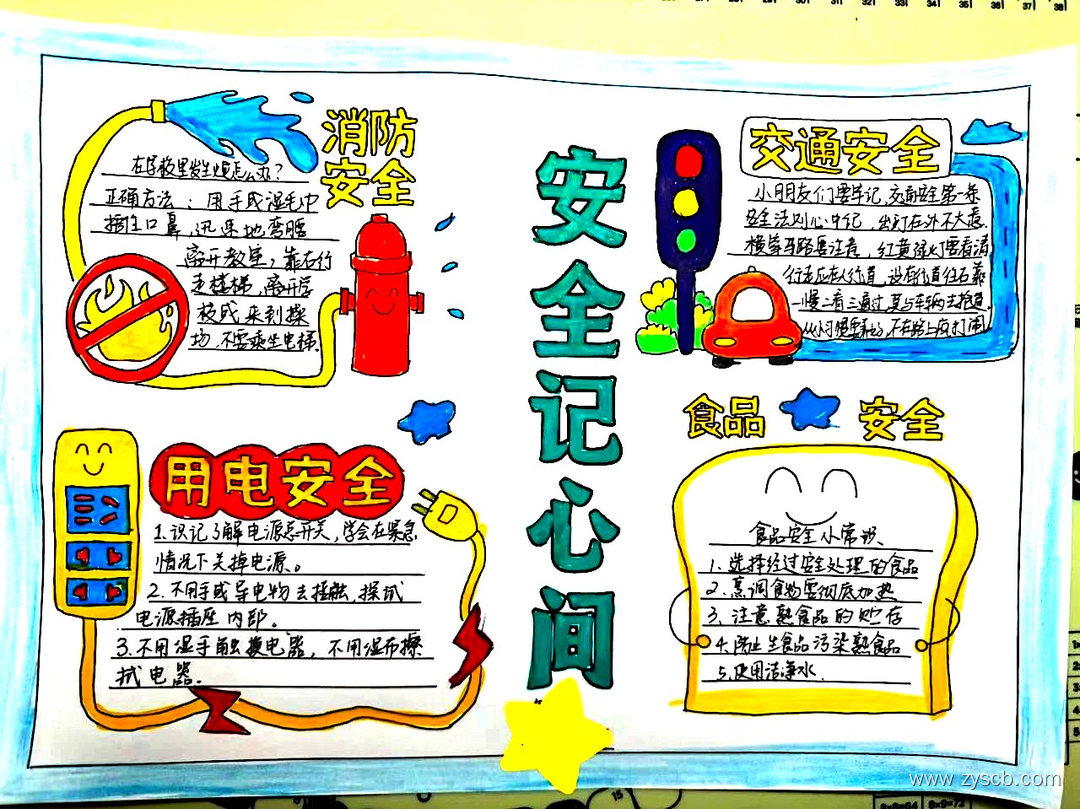 消防
安全
在学校里发生火灾怎么办?
正确方法:用手或湿毛巾
捂住口鼻,迅速地弯腰
离开教室,靠右行
走楼梯,离开学
校或来到操
场,不要乘坐电梯。
安全记心间
交通安全
小朋友们要牢记,交通安全第一条
安全法则心中记,出行在外不大意
横穿马路要注意,红黄绿灯要看清
行走应在人行道,没有行道往右靠
一慢二看三通过,莫与车辆去抢道
不在路上玩打闹
用电安全
1.识记了解电源总开关,学会在紧急
情况下关掉电源。
2.不用手或导电物去接触,探试
电源插座内部。
3.不用湿手触摸电器,不用湿布擦
拭电器。
食品安全
食品安全小常识
1.选择经过安全处理的食品
2.烹调食物要彻底加热
3.注意熟食品的贮存
4.防止生食品污染熟食品
5.使用洁净水
www.zyscb.com